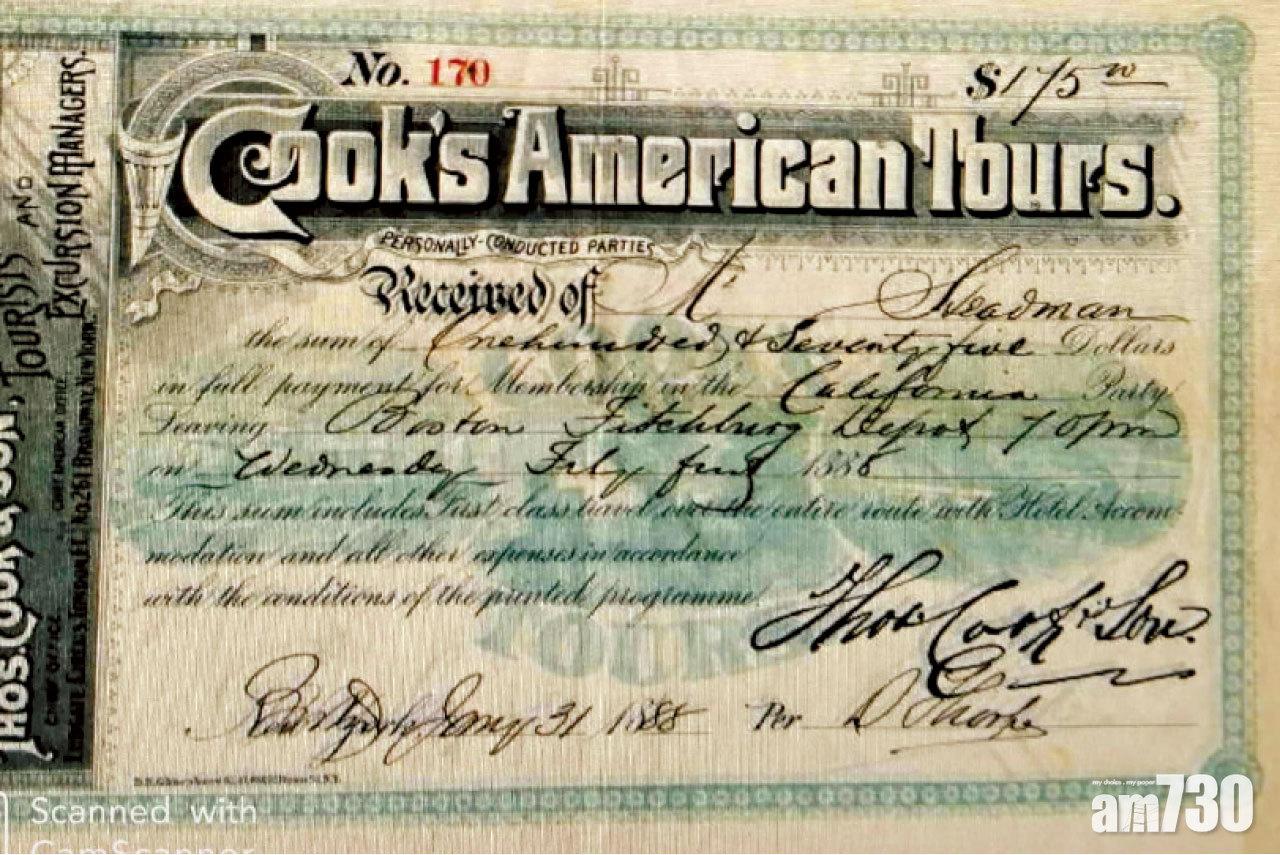 No. 170
$175 00
Cook's American Tours.
PERSONALLY-CONDUCTED PARTIES
Received of Mr Steadman
the sum of Onehundred & Seventy five Dollars
in full payment for Membership in the California Party
Leaving Boston Fitchburg Depot 7 0 pm
on Wednesday Feby first 1888
This sum includes First class travel over the entire route with Hotel Accom-
modation and all other expenses in accordance
with the conditions of the printed programme
Thos Cook & Son.
New York Jany 31 1888 Per D Thorpe
TOURS
THOS. COOK & SON, TOURISTS AND
EXCURSION MANAGERS.
CHIEF OFFICE
LUDGATE CIRCUS LONDON
CHIEF AMERICAN OFFICE
No. 261 BROADWAY, NEW YORK.
Scanned with
CamScanner
my choice . my paper
am730